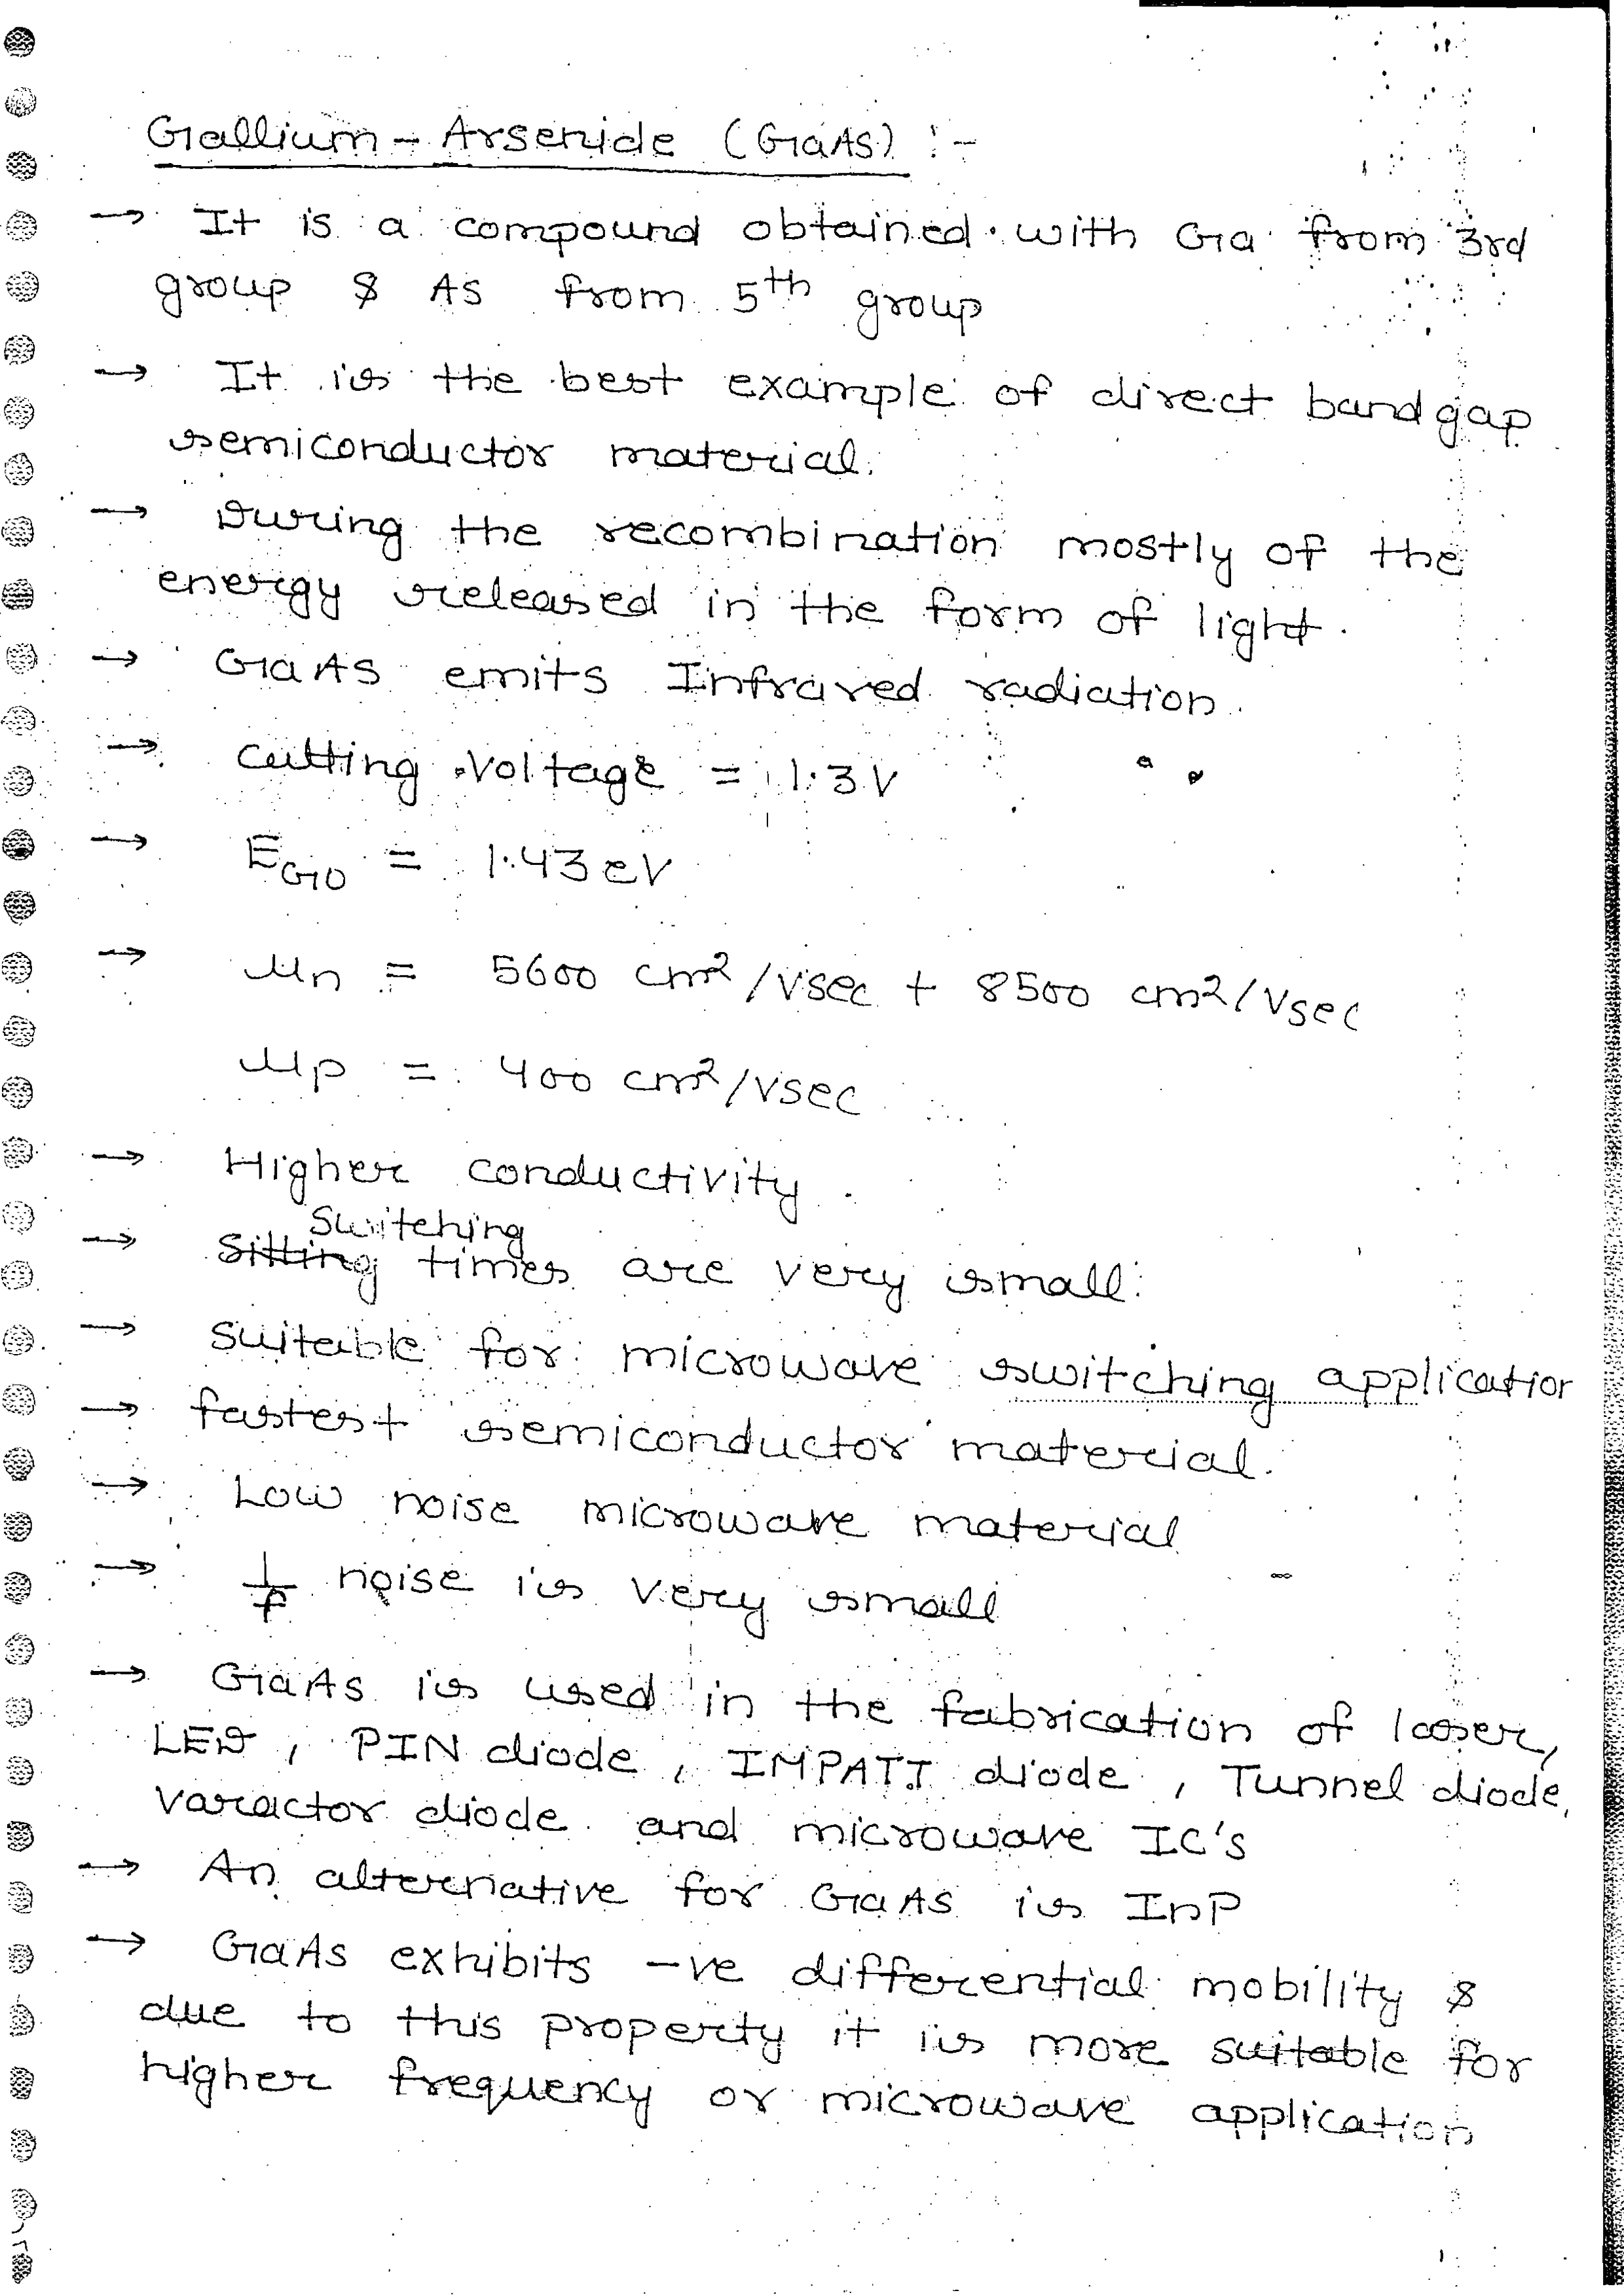 Gallium - Arsenide (GaAs) :-
→ It is a compound obtained with Ga from 3rd
group & As from 5th group
→ It is the best example of direct bandgap
semiconductor material.
→ During the recombination mostly of the
energy released in the form of light.
→ GaAs emits Infrared radiation.
→ Cutting voltage = 1.3V
→ EG0 = 1.43 eV
→ μn = 5600 cm²/Vsec + 8500 cm²/Vsec
μp = 400 cm²/Vsec
→ Higher conductivity.
Switching
→ Sitting times are very small.
→ Suitable for microwave switching application
→ fastest semiconductor material.
→ Low noise microwave material
→ 1/f noise is very small
→ GaAs is used in the fabrication of laser,
LED, PIN diode, IMPATT diode, Tunnel diode,
varactor diode and microwave IC's
→ An alternative for GaAs is InP
→ GaAs exhibits -ve differential mobility &
due to this property it is more suitable for
higher frequency or microwave application